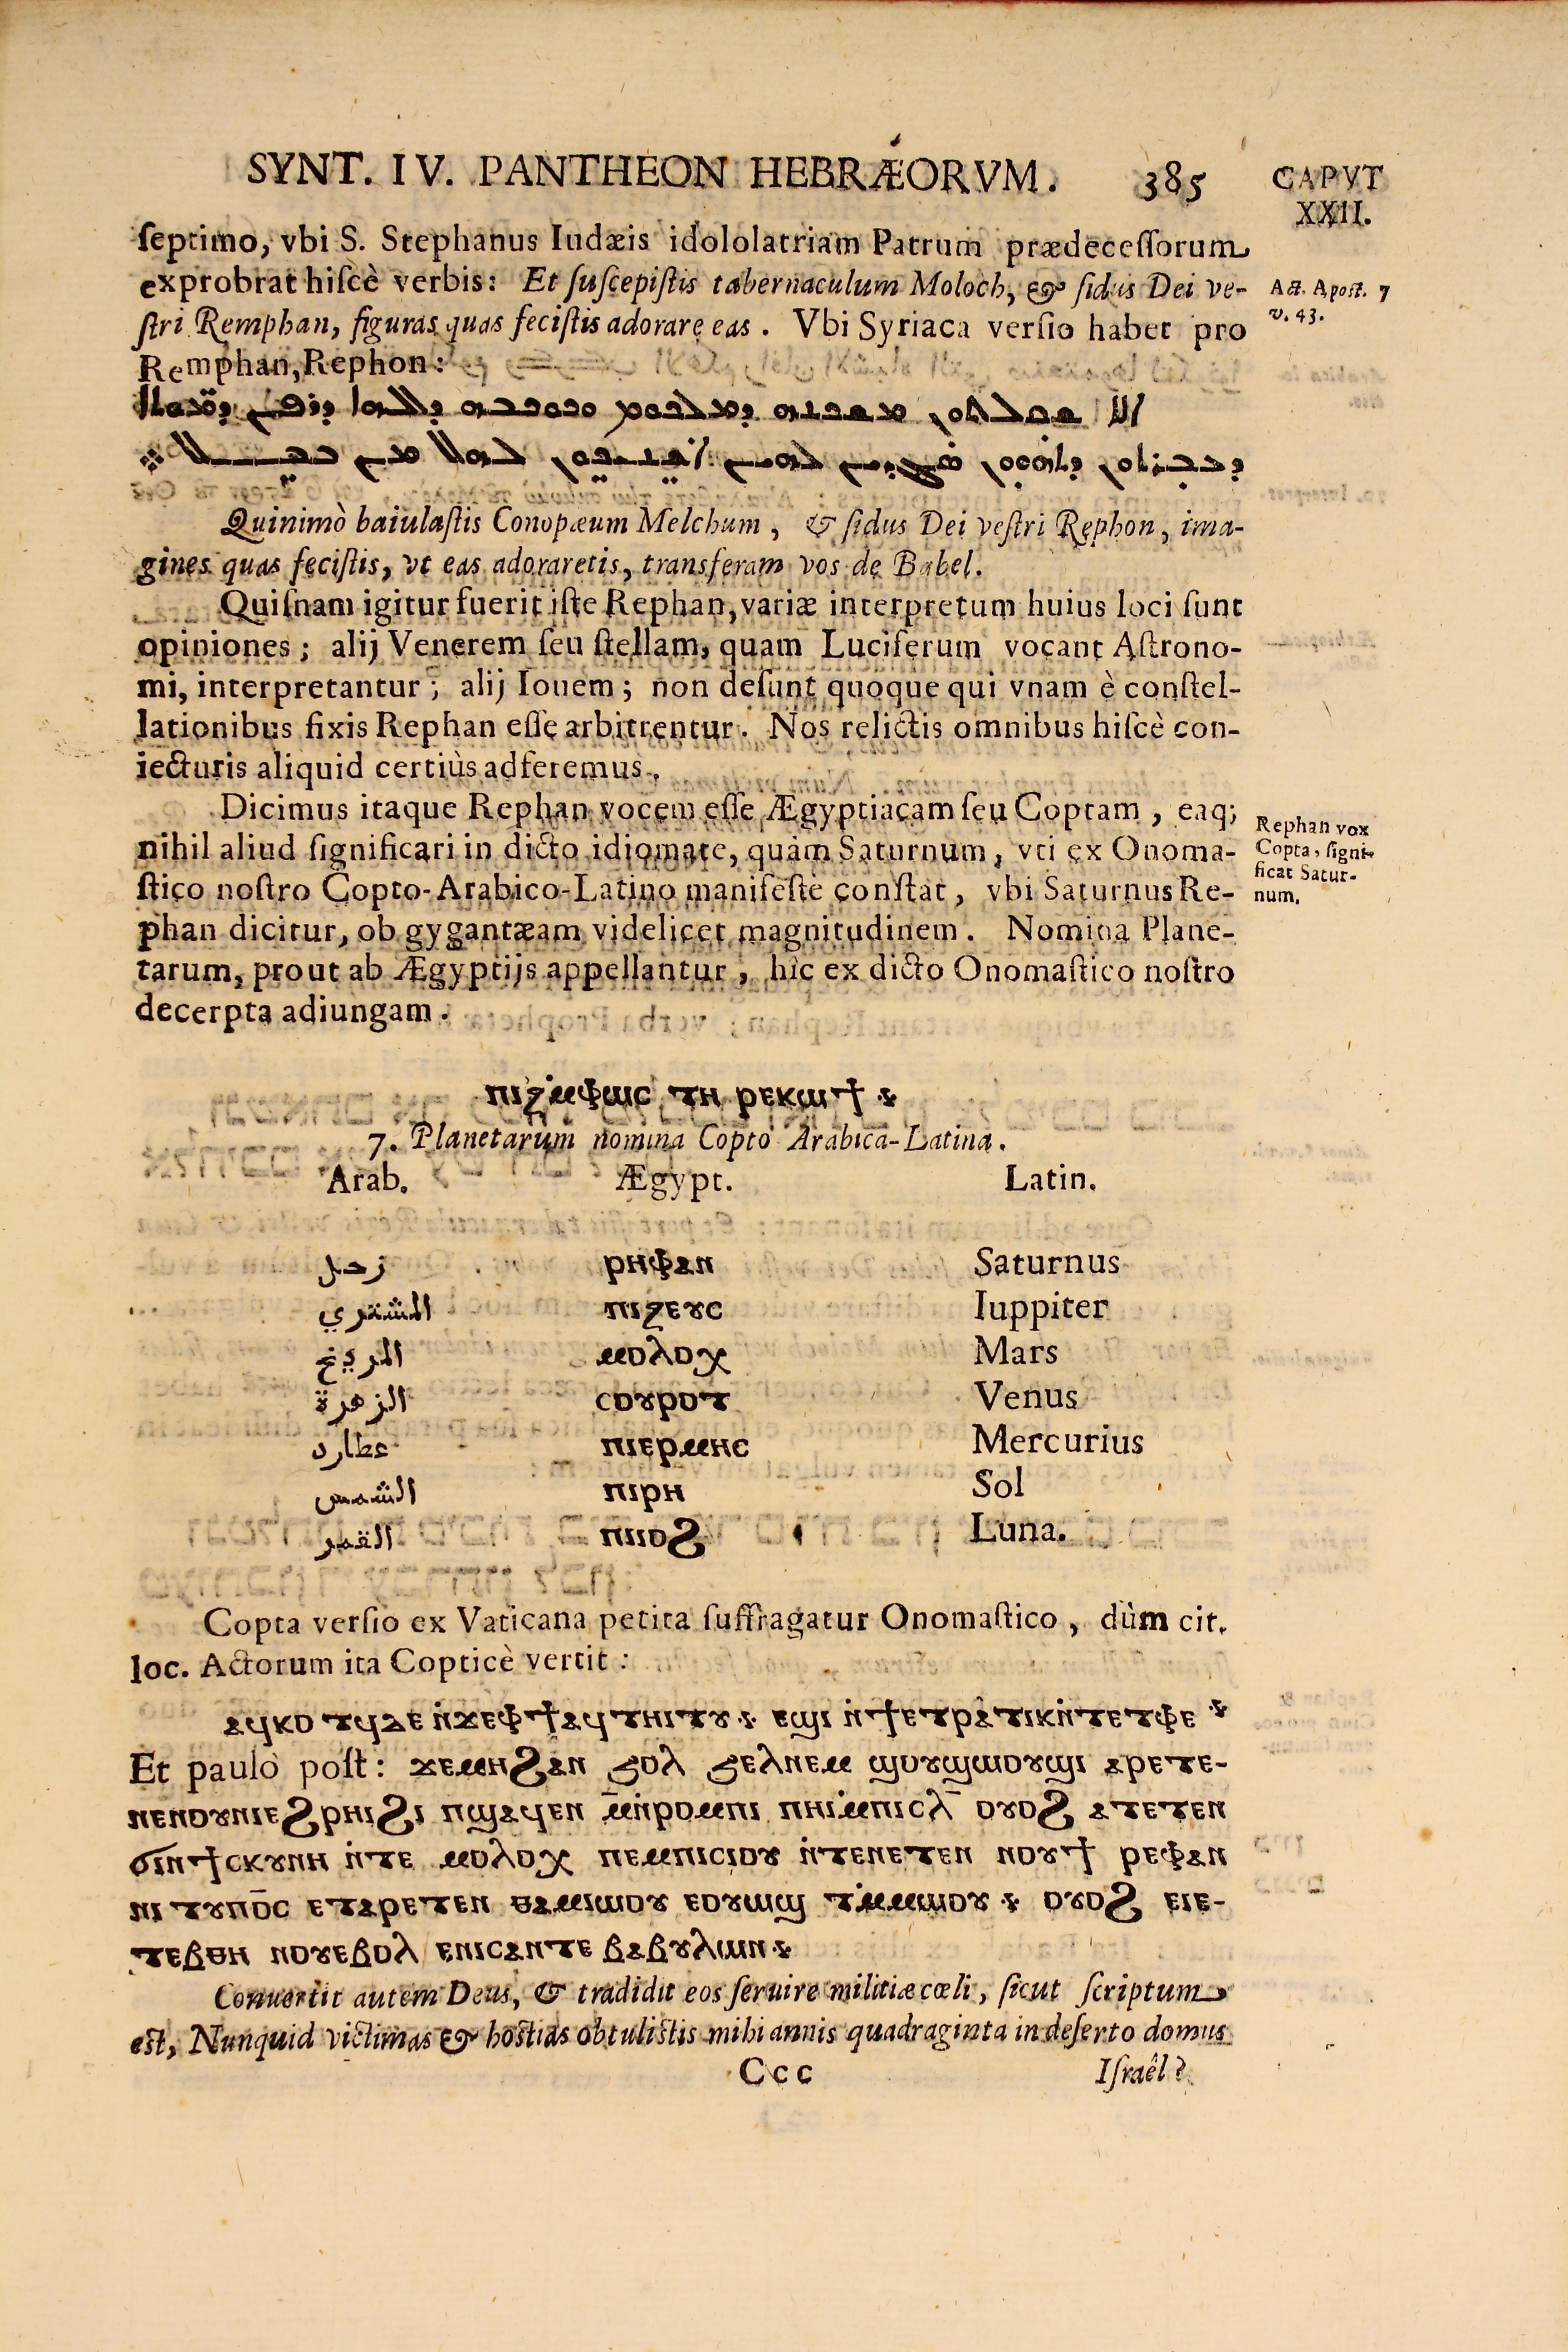 SYNT. IV. PANTHEON HEBRÆORVM. 385
CAPVT
XXII.
ſeptimo, vbi S. Stephanus Iudæis idololatriam Patrum prædeceſſorum
exprobrat hiſcè verbis: Et ſuſcepiſtis tabernaculum Moloch, & ſidus Dei ve-
ſtri Remphan, figuras quas feciſtis adorare eas. Vbi Syriaca verſio habet pro
Remphan, Rephon:
Act. Apost. 7
v. 43.
ܐܠܐ ܫܩܠܬܘܢ ܡܫܟܢܗ ܕܡܠܟܘܡ ܘܟܘܟܒܗ ܕܐܠܗܐ ܕܪܦܢ ܕܡܘܬܐ
ܕܥܒܕܬܘܢ ܕܬܗܘܘܢ ܣܓܕܝܢ ܠܗܝܢ ܐܫܢܝܟܘܢ ܠܗܠ ܡܢ ܒܒܠ
Quinimò baiulaſtis Conopæum Melchum, & ſidus Dei veſtri Rephon, ima-
gines quas feciſtis, vt eas adoraretis, transferam vos de Babel.
Quiſnam igitur fuerit iſte Rephan, variæ interpretum huius loci ſunt
opiniones; alij Venerem ſeu ſtellam, quam Luciferum vocant Aſtrono-
mi, interpretantur; alij Iouem; non deſunt quoque qui vnam è conſtel-
lationibus fixis Rephan eſſe arbitrentur. Nos relictis omnibus hiſcè con-
iecturis aliquid certiùs adferemus.
Dicimus itaque Rephan vocem eſſe Ægyptiacam ſeu Coptam, eaq;
nihil aliud ſignificari in dicto idiomate, quàm Saturnum, vti ex Onoma-
ſtico noſtro Copto-Arabico-Latino manifeſtè conſtat, vbi Saturnus Re-
phan dicitur, ob gygantæam videlicet magnitudinem. Nomina Plane-
tarum, prout ab Ægyptijs appellantur, hìc ex dicto Onomaſtico noſtro
decerpta adiungam.
Rephan vox
Copta, ſigni-
ficat Satur-
num.
ⲡⲓⲍ̀ⲙⲫⲱⲥ ⲧⲏ ⲣⲉⲕⲱϯ
7. Planetarum nomina Copto Arabica-Latina.
Arab. Ægypt. Latin.
زحل ⲣⲏⲫⲁⲛ Saturnus
المشتري ⲡⲓⲍⲉⲩⲥ Iuppiter
المريخ ⲙⲟⲗⲟⲭ Mars
الزهرة ⲥⲟⲩⲣⲟⲧ Venus
عطارد ⲡⲓⲉⲣⲙⲏⲥ Mercurius
الشمس ⲡⲓⲣⲏ Sol
القمر ⲡⲓⲓⲟϩ Luna.
Copta verſio ex Vaticana petita ſuffragatur Onomaſtico, dùm cit.
loc. Actorum ita Copticè vertit:
ⲁϥⲕⲟ ⲧϥⲇⲉ ⲛ̀ϫⲉⲫϯⲁϥⲧⲏⲓⲧⲩ ⲉϣⲓ ⲛ̀ϯⲉⲧⲣⲁ̀ⲧⲓⲕⲛ̀ⲧⲉⲧⲫⲉ
Et paulò poſt: ϫⲉⲙⲏϩⲁⲛ ϧⲟⲗ ϧⲉⲗⲛⲉⲙ ϣⲟⲩϣⲱⲟⲩϣⲓ ⲁⲣⲉⲧⲉ-
ⲛⲉⲛⲟⲩⲛⲓⲉϩⲣⲏⲓϩⲓ ⲡϣⲁϥⲉⲛ ⲙ̅ⲛ̀ⲣⲟⲙⲡⲓ ⲡⲏⲓⲙ̀ⲡⲓⲥⲗ̅ ⲟⲩⲟϩ ⲁⲧⲉⲧⲉⲛ
ϭⲓⲛϯⲥⲕⲩⲛⲏ ⲛ̀ⲧⲉ ⲙⲟⲗⲟⲭ ⲛⲉⲙⲡⲓⲥⲓⲟⲩ ⲛ̀ⲧⲉⲛⲉⲧⲉⲛ ⲛⲟⲩϯ ⲣⲉⲫⲁⲛ
ⲛⲓ ⲧⲩⲡⲟ̅ⲥ ⲉⲧⲁⲣⲉⲧⲉⲛ ⲑⲁⲙⲓⲱⲟⲩ ⲉⲟⲩⲱϣ ⲧⲙ̀ⲙⲱⲟⲩ ⲟⲩⲟϩ ⲉⲓⲉ-
ⲧⲉⲃⲑⲏ ⲛⲟⲩⲉⲃⲟⲗ ⲉⲛⲓⲥⲁⲛⲧⲉ ⲃⲁⲃⲩⲗⲱⲛ
Conuertit autem Deus, & tradidit eos ſeruire militiæ cœli, ſicut ſcriptum
eſt, Nunquid victimas & hoſtias obtuliſtis mihi annis quadraginta in deſerto domus
Ccc Iſraêl?